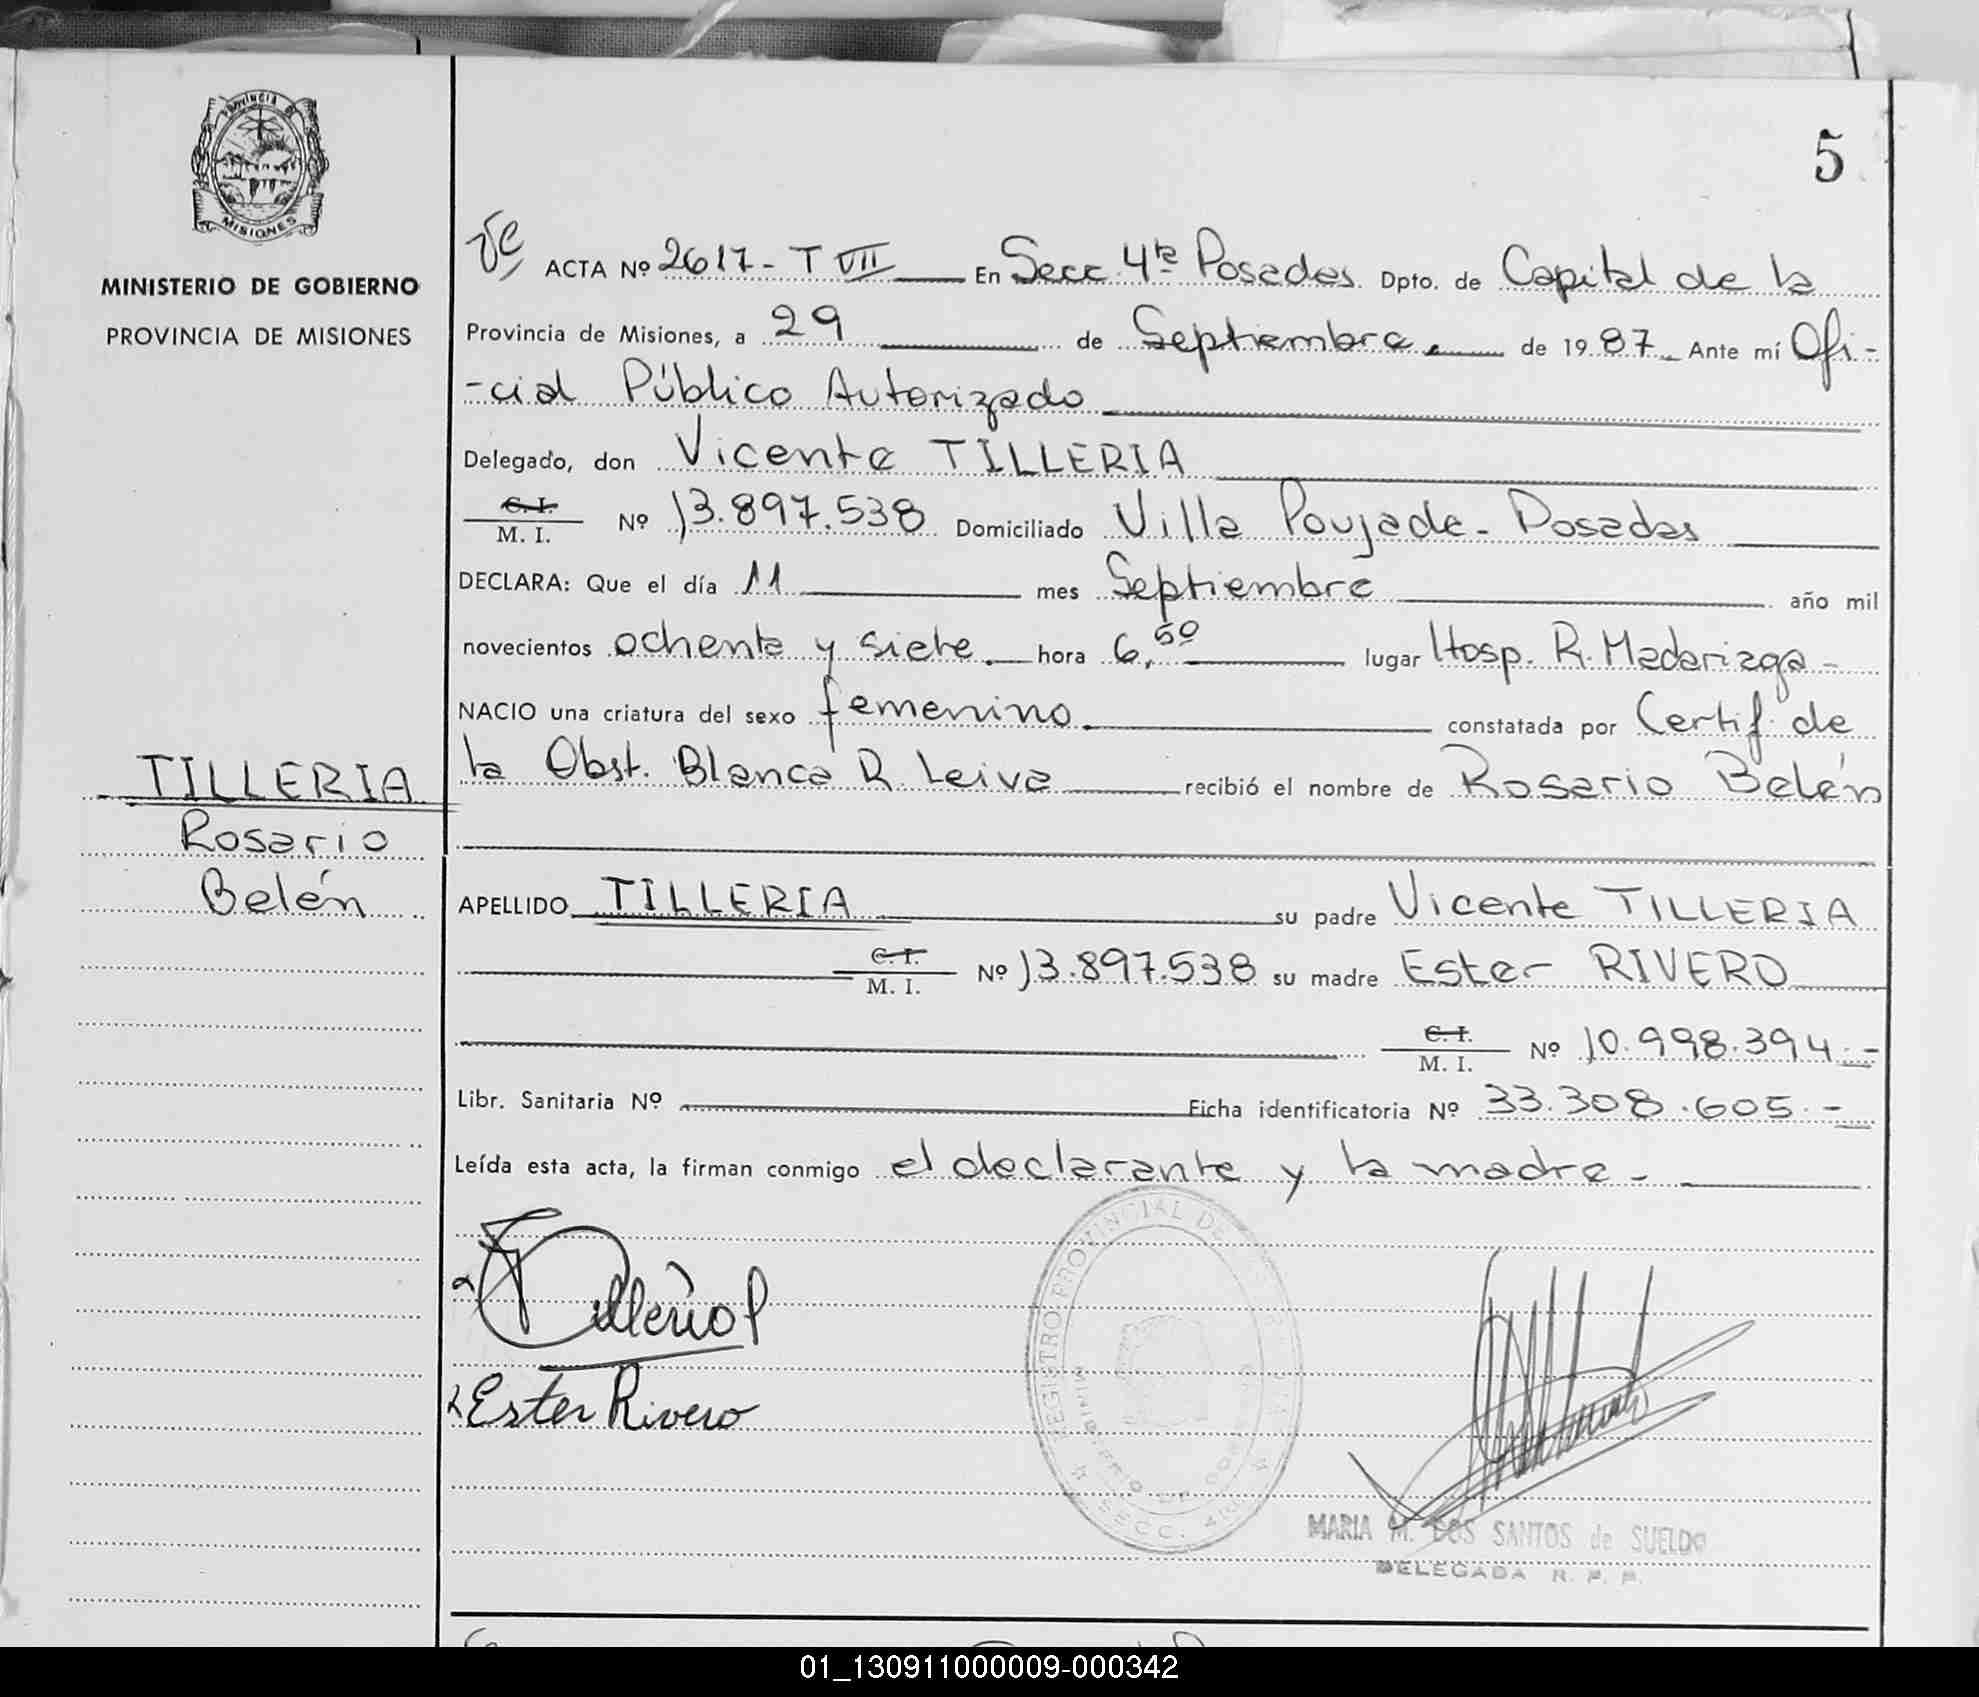 PROVINCIA DE
MISIONES
MINISTERIO DE GOBIERNO
PROVINCIA DE MISIONES
TILLERIA
Rosario
Belén
5
ACTA Nº 2617 - T VII En Secc. 4ta Posadas. Dpto. de Capital de la
Provincia de Misiones, a 29 de Septiembre. de 1987. Ante mí Ofi-
-cial Público Autorizado
Delegado, don Vicente TILLERIA
C. I.
M. I. Nº 13.897.538 Domiciliado Villa Poujade - Posadas
DECLARA: Que el día 11 mes Septiembre año mil
novecientos ochenta y siete. hora 6,50 lugar Hosp. R. Madariaga -
NACIO una criatura del sexo femenino. constatada por Certif. de
la Obst. Blanca R. Leiva recibió el nombre de Rosario Belén
APELLIDO TILLERIA su padre Vicente TILLERIA
C. I.
M. I. Nº 13.897.538 su madre Ester RIVERO
C. I.
M. I. Nº 10.998.394.-
Libr. Sanitaria Nº Ficha identificatoria Nº 33.308.605.-
Leída esta acta, la firman conmigo el declarante y la madre -
Ester Rivero
REGISTRO PROVINCIAL DE
MINISTERIO DE
SECC. 4ta
MARIA M. DOS SANTOS de SUELDO
DELEGADA R. P. P.
01_130911000009-000342